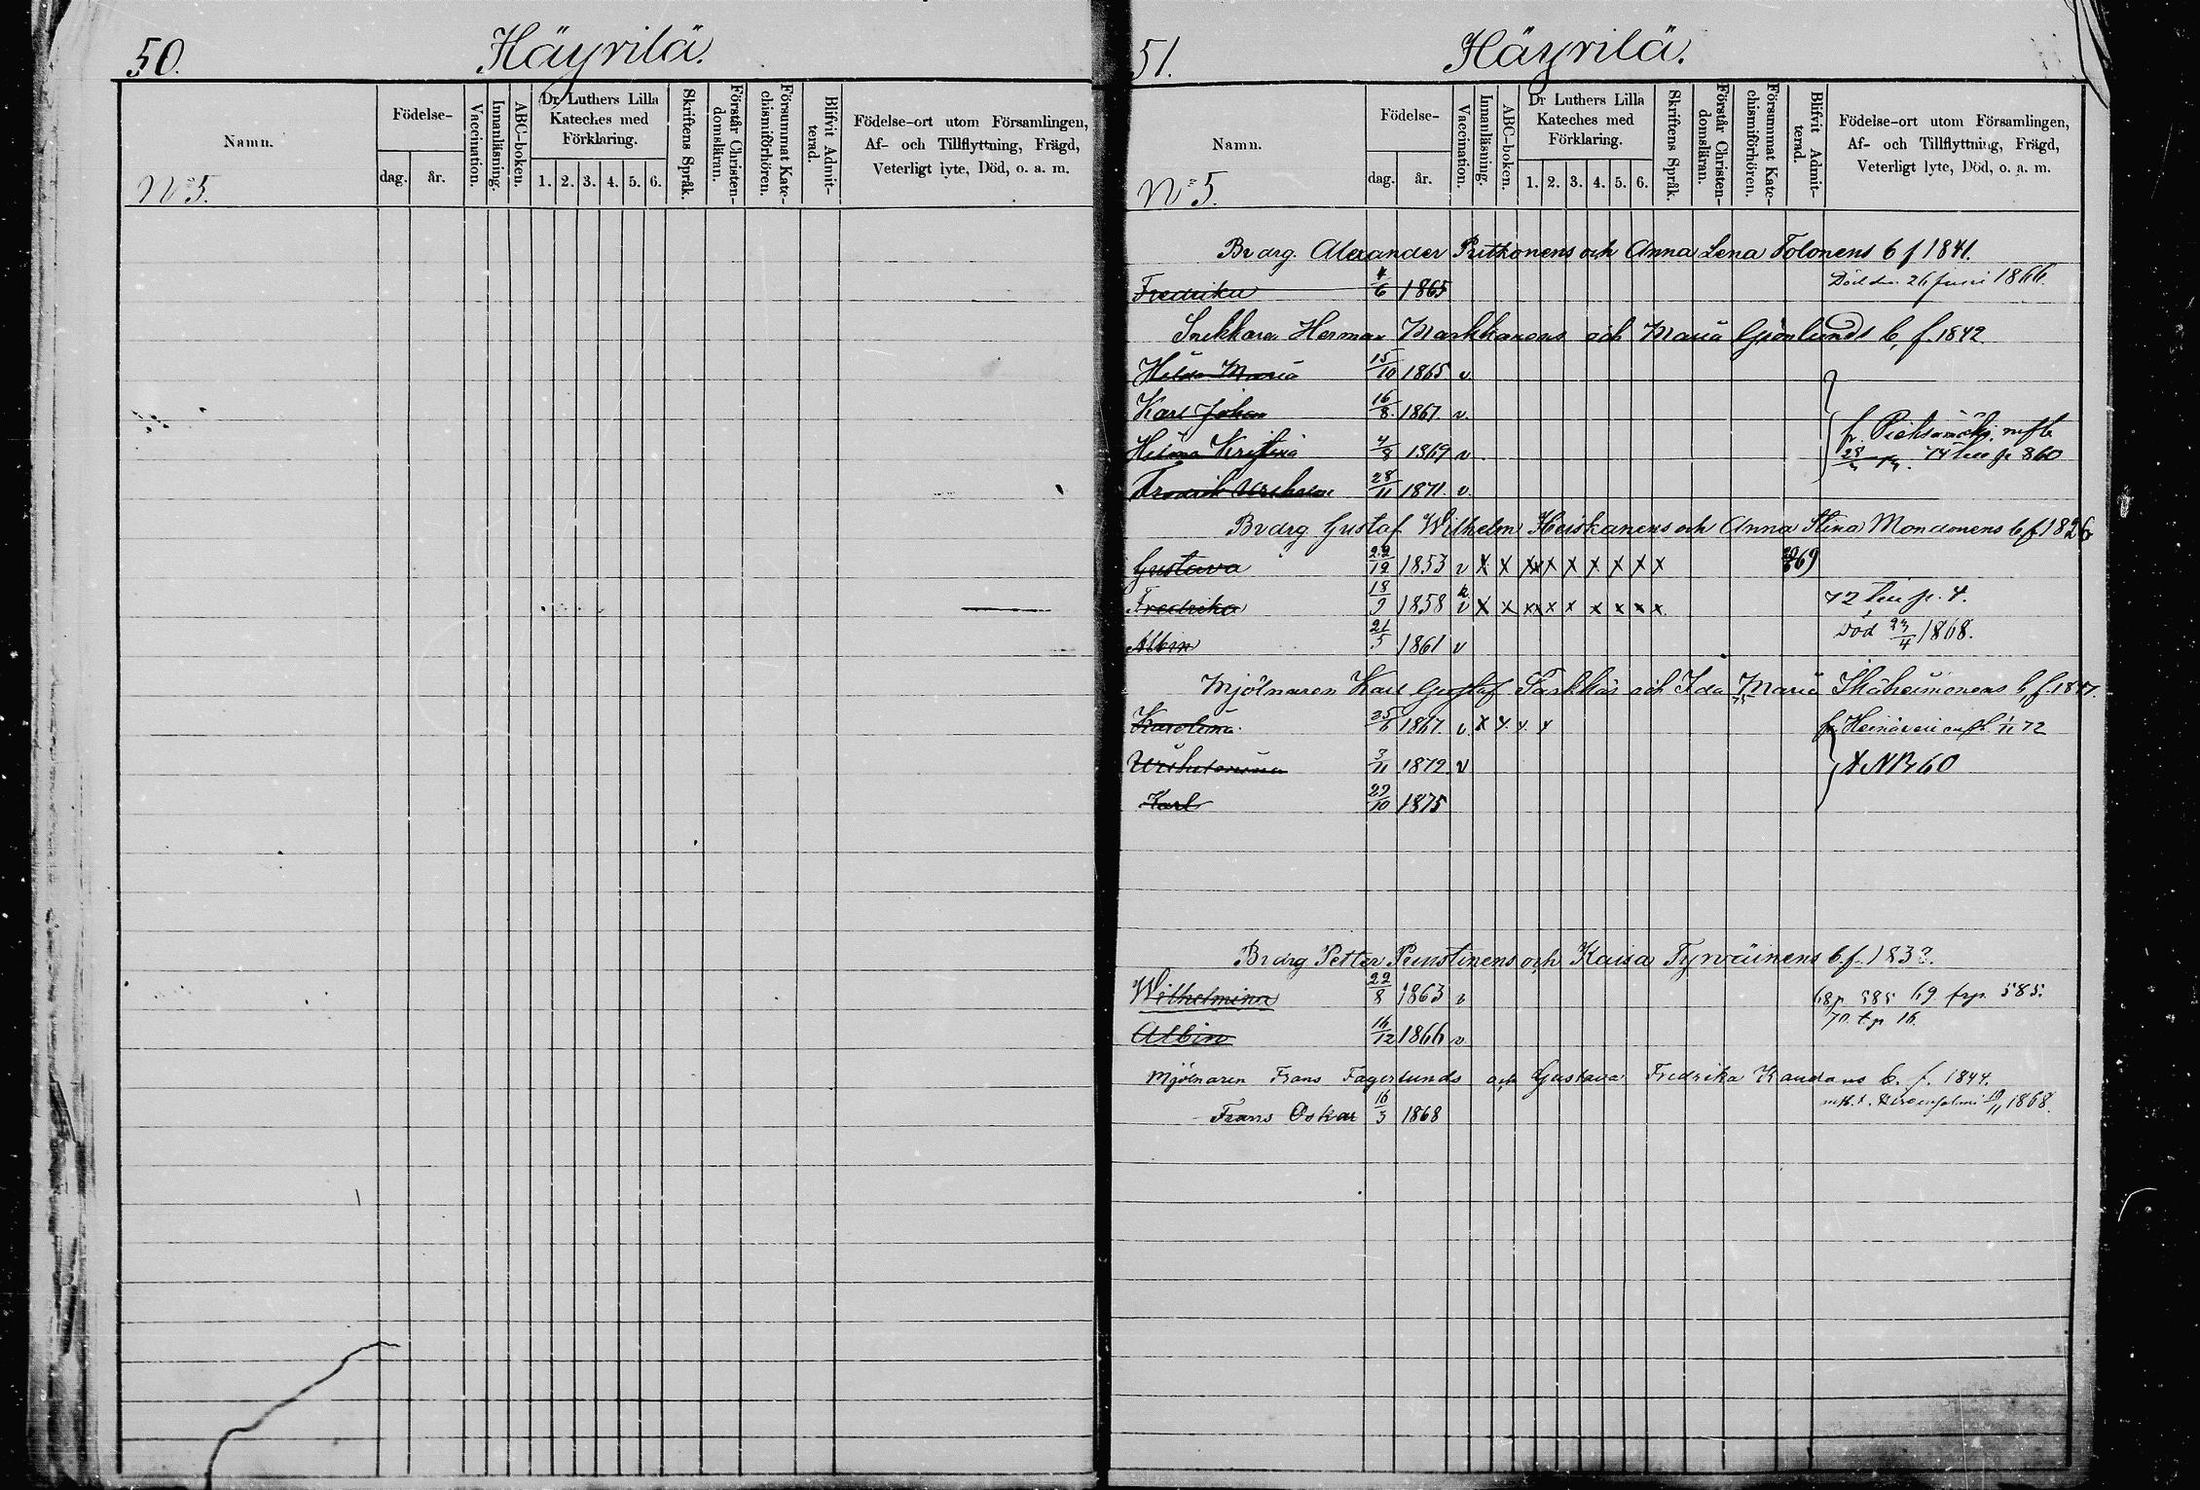 50.
Häyrilä.
Namn.
Födelse-
dag. år.
Vaccination.
Innanläsning.
ABC-boken.
Dr Luthers Lilla
Kateches med
Förklaring.
1. 2. 3. 4. 5. 6.
Skriftens Språk.
Förstår Christen-
domsläran.
Försummat Kate-
chismiförhören.
Blifvit Admit-
terad.
Födelse-ort utom Församlingen,
Af- och Tillflyttning, Frägd,
Veterligt lyte, Död, o. a. m.
N:5.
51.
Häyrilä.
Namn.
Födelse-
dag. år.
Vaccination.
Innanläsning.
ABC-boken.
Dr Luthers Lilla
Kateches med
Förklaring.
1. 2. 3. 4. 5. 6.
Skriftens Språk.
Förstår Christen-
domsläran.
Försummat Kate-
chismiförhören.
Blifvit Admit-
terad.
Födelse-ort utom Församlingen,
Af- och Tillflyttning, Frägd,
Veterligt lyte, Död, o. a. m.
N:5.
Bvarg. Alexander och Anna Lena Tolonens b f 1841.
Fredrika 4/6 1865 Död den 26 juni 1866.
Snikkara Herman Markkanens och Maria Grönlunds b. f. 1842
Hilda Maria 15/10 1865 v
Karl Johan 16/8 1867 v.
Hilma Kristina 4/8 1869 v
fr. Pieksämäki mfb
28/ 74 860
Fredrik Wilhelm 28/11 1871. v.
Bvarg Gustaf Wilhelm Heiskanens och Anna Stina Mononens b f 1826
Gustava 22/12 1853 v x x xx x x x x x x 69
Fredrika 18/9 1858 v x x xx x x x x x x 72 p. 4.
Albin 21/5 1861 v Död 23/4 1868.
Mjölnaren Karl Gustaf Tarkkas och Ida Maria Ikäheimonens b. f. 1847.
Karolina 25/6 1867. v. x x x x fr. Heinävesi mfb 1/11 72
Wilhelmina 3/11 1872 v
Karl 29/10 1875
60
Bvarg Petter Puustinens och Kaisa Tyrväinens b. f. 183
Wilhelmina 22/8 1863 v 68 p 585 69 frp. 585.
70. t. p 16.
Albin 16/12 1866 v
Mjölnaren Frans Fagerlunds och Gustava Fredrika b. f. 1844.
Frans Oskar 16/3 1868 mfb. t. 1868.